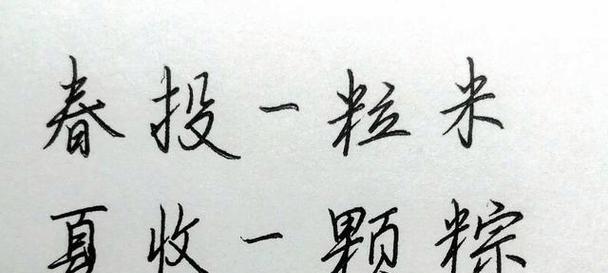 春投一粒米
夏收一颗粽